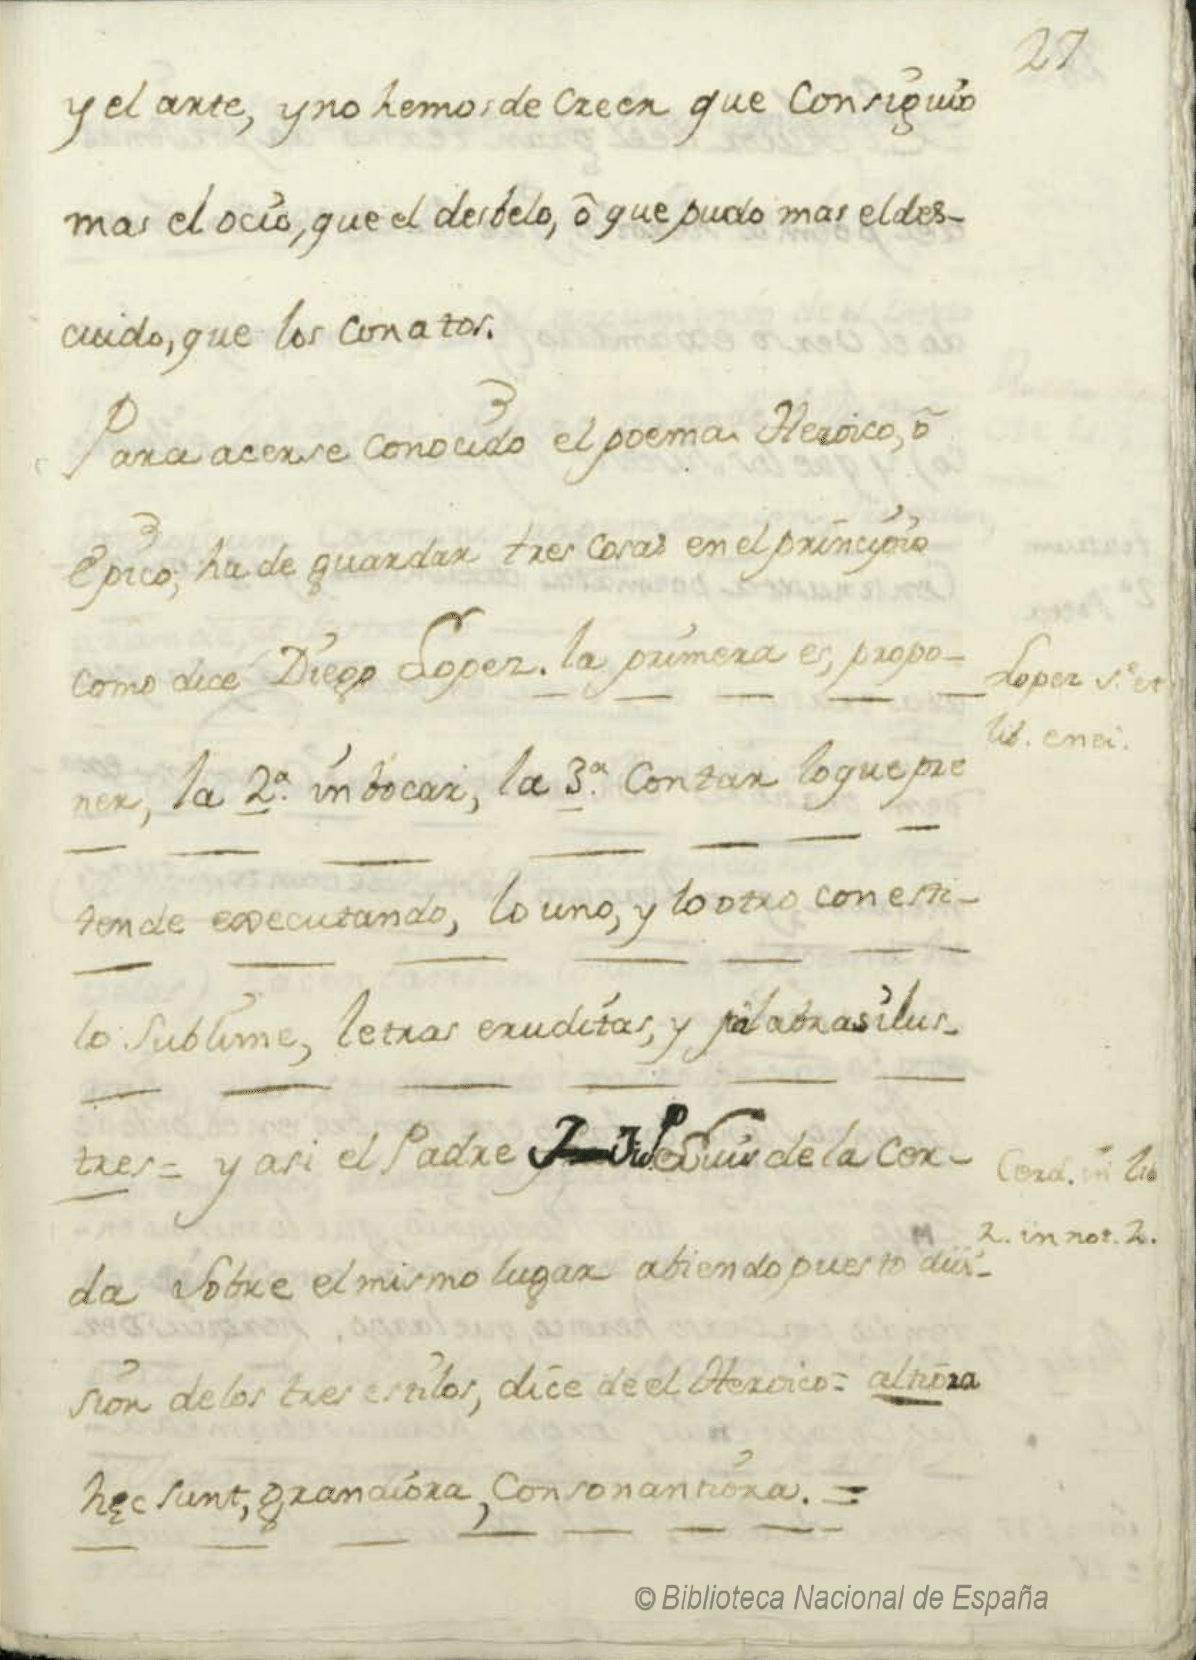 27
y el arte, y no hemos de creer que consiguio
mas el ocio, que el desbelo, ô que pudo mas el des-
cuido, que los conatos.
Para acerse conocido el poema Heroico, ô
Epico, ha de guardar tres cosas en el principio
como dice Diego Lopez. la primera es, propo-
Lopez s.e et
lib. enei.
ner, la 2ª. inbocar, la 3ª. contar lo que pre
tende executando, lo uno, y lo otro con esti-
lo sublime, letras eruditas, y palabras ilus-
tres = y asi el Padre Luis de la Cer-
Cerd. in lib
2. in not. 2.
da sobre el mismo lugar abiendo puesto divi-
sion de los tres estilos, dice de el Heroico = altiora
hęc sunt, grandiora, Consonantiora. =
© Biblioteca Nacional de España